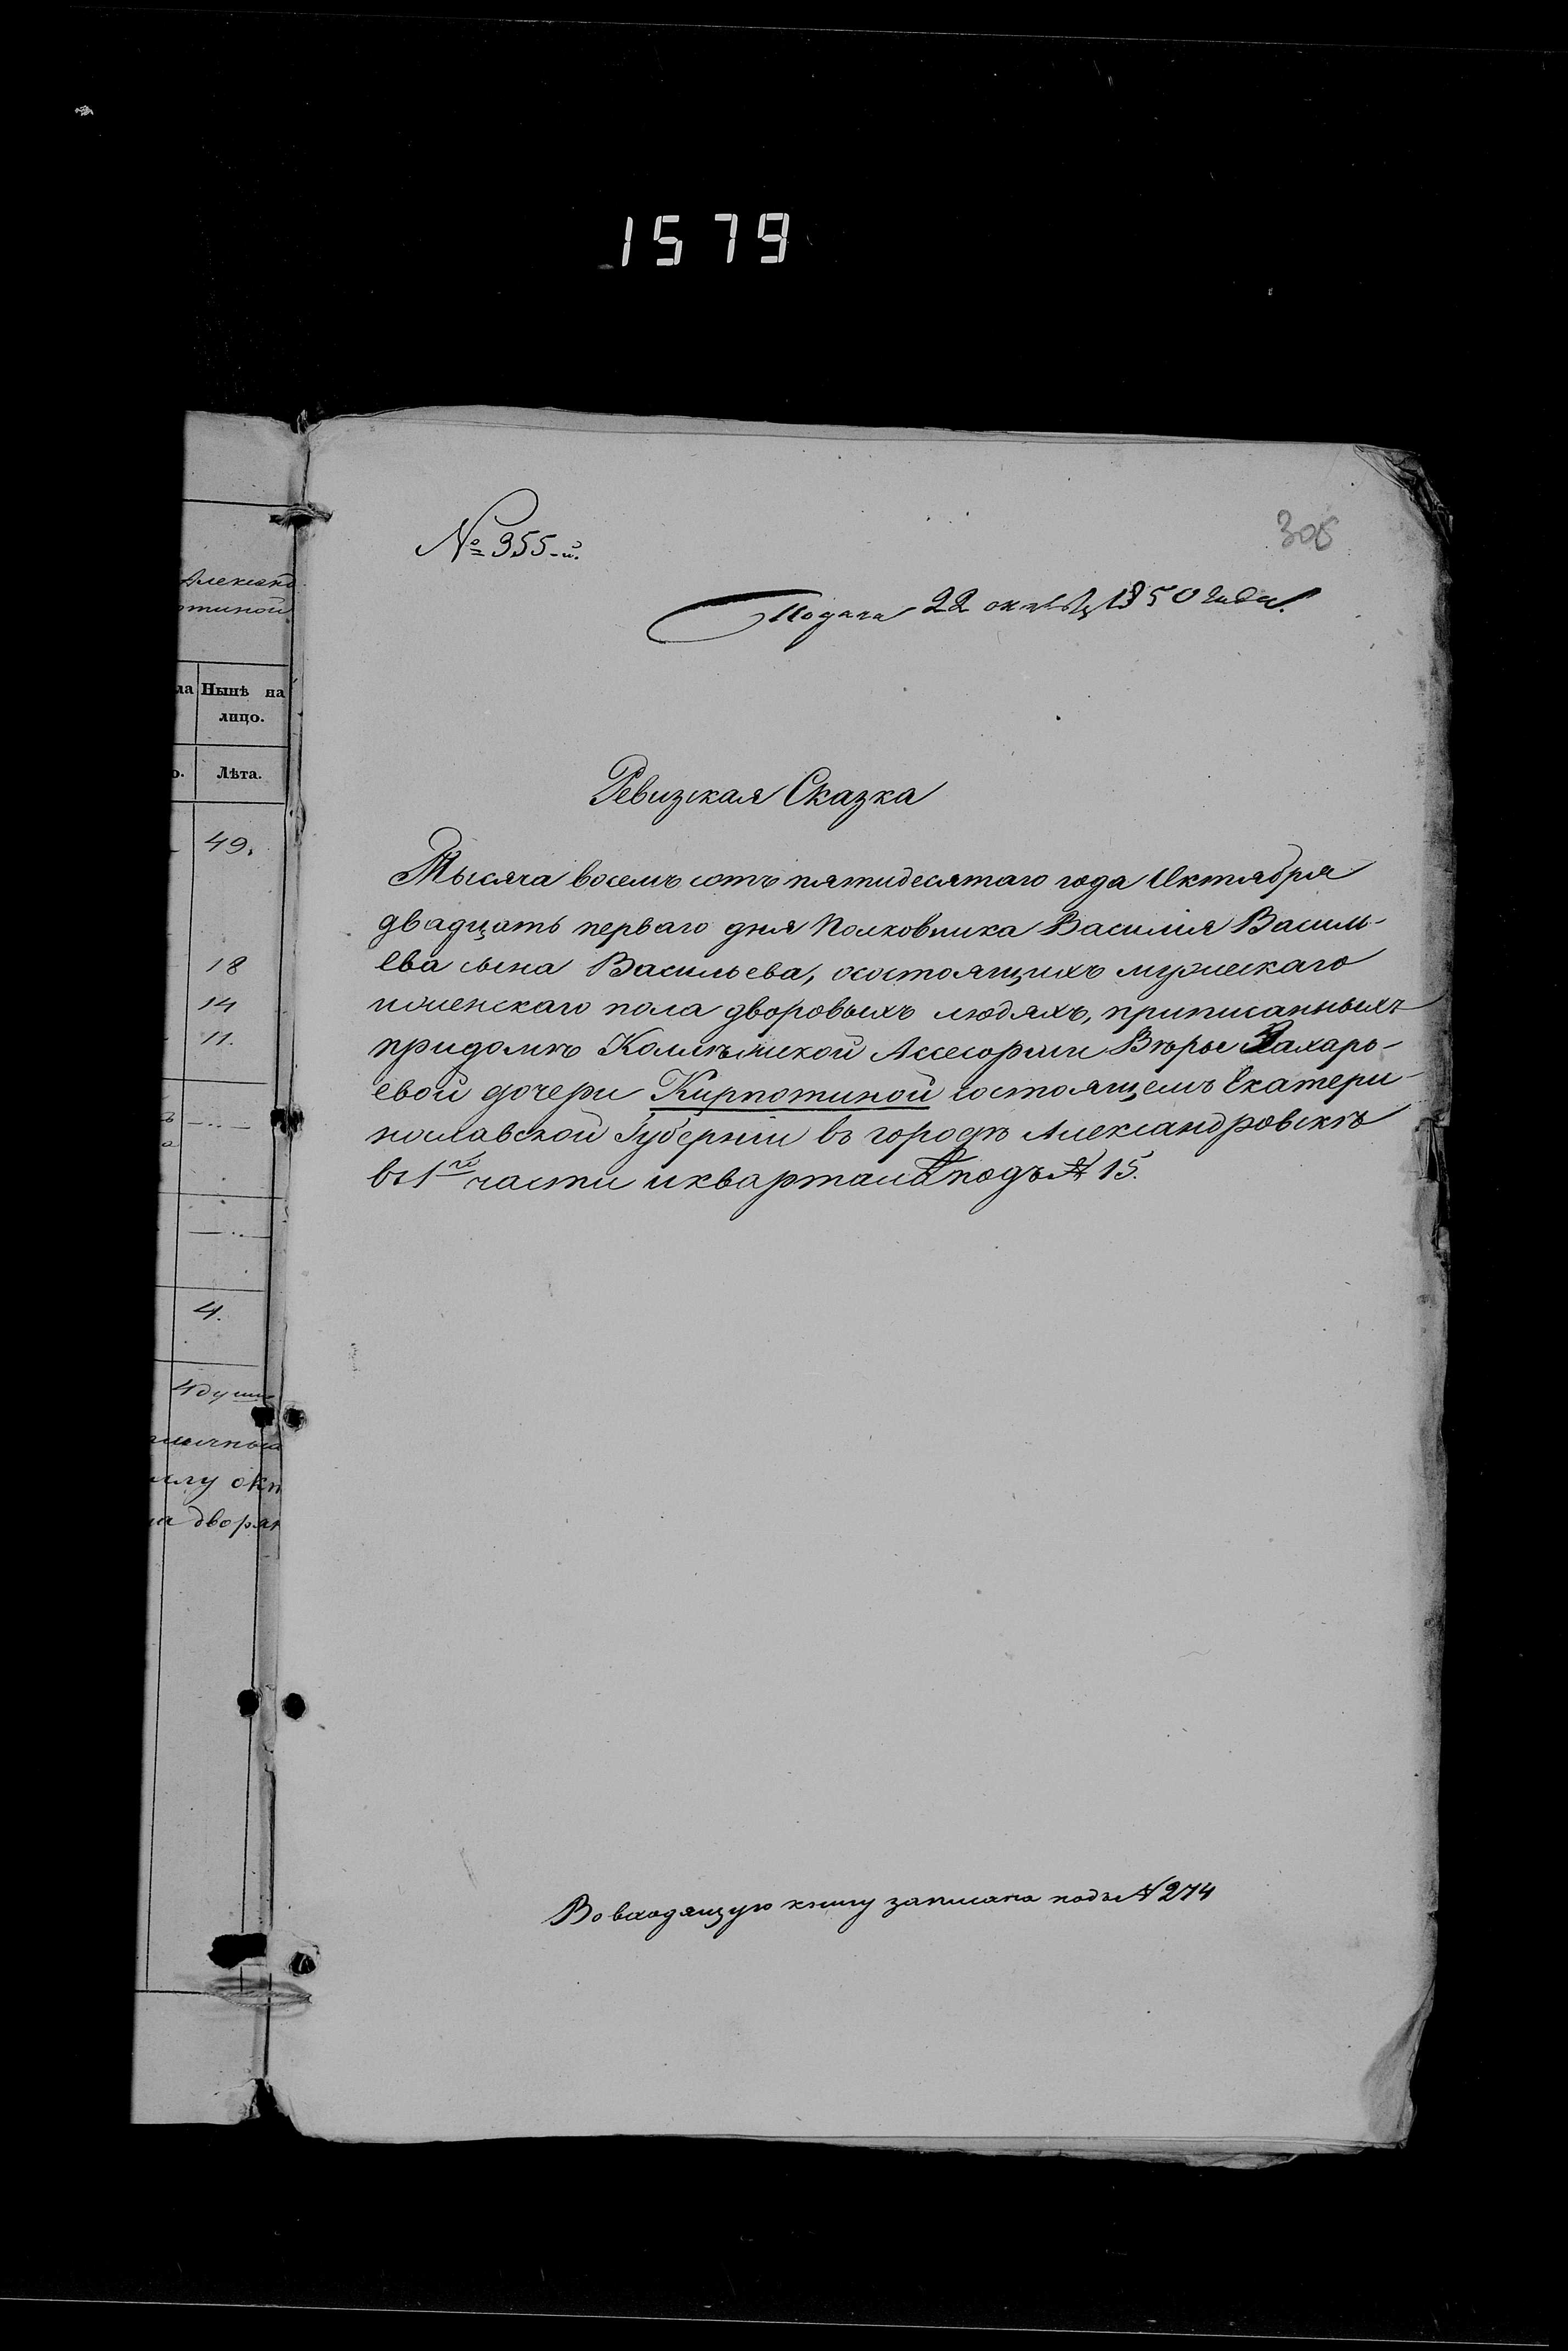 1579
№ 355-й.
305
Подана 22 октября 1850 года.
Ревизская Сказка
Тысяча восемь сотъ пятидесятаго года Октября
двадцать перваго дня Полковника Василія Василь-
ева сына Васильева, о состоящихъ мужескаго
и женскаго пола дворовыхъ людяхъ, приписанныхъ
при домѣ Коллежской Ассесорши Вѣры Захарь-
евой дочери Кирпотиной состоящемъ Екатери-
нославской Губерніи въ городѣ Александровскѣ
въ 1й части и квартала подъ № 15.
Во входящую книгу записана подъ № 274
Александ
отиной
ла Нынѣ на
лицо.
о. Лѣта.
49.
18
14
11.
4.
4 души
илу окт
на дворян